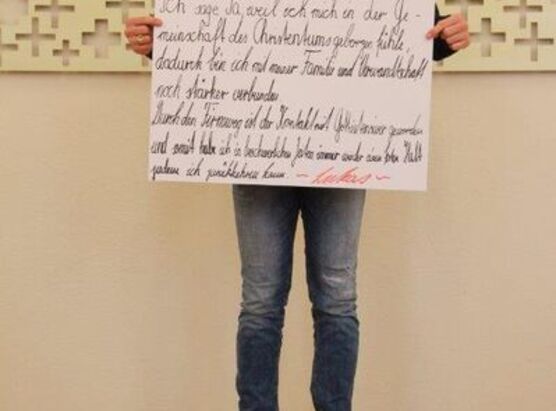 Ich sage Ja, weil ich mich in der Ge-
meinschaft des Christentums geborgen fühle,
dadurch bin ich mit meiner Familie und Verwandtschaft
noch stärker verbunden.
Durch den Firmweg ist der Kontakt mit Gott intensiver geworden
und somit habe ich in beschwerlichen Zeiten immer wieder einen Halt
zudem ich zurückkehren kann. ~ Lukas ~